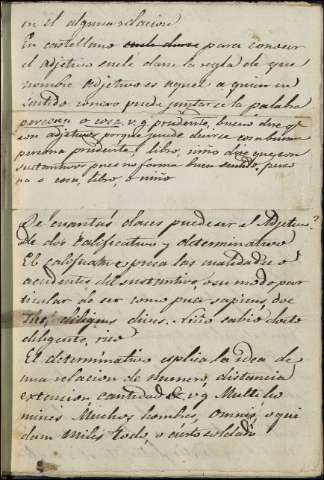 en el alguna relacion
En castellano suele darse para conocer
el adjetivo suele darse la regla de que
nombre adjetivo es aquel a quien en
sentido puede juntarse la palabra
persona o cosa, v.g. prudente, bueno dire qe
son adjetivos porque puede decirse cosa buena
persona prudente, libro, niño dire que son
sustantivos pues no forma buen sentido, perso
na o cosa, libro, o niño
De cuantas clases puede ser el Adjetivo?
De dos calificativo y determinativo
El calificativo espresa las cualidades o
accidentes del sustantivo, o su modo par
ticular de ser como puer sapiens, doc
tus, diligens dives. Niño sabio docto
diligente, rico
El determinativo esplica la idea de
una relacion de numero, distancia
extencion, cantidad &c, v.g Multi ho
mines Muchos hombres, omnis, o qui
dam miles todo, o cierto soldado